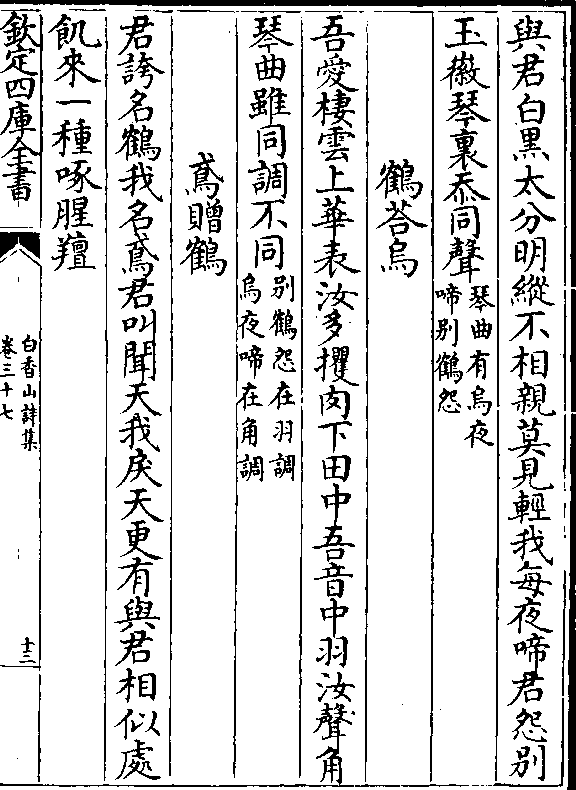 與君白黑太分明縱不相親莫見輕我每夜啼君怨别
玉徽琴裏忝同聲琴曲有烏夜
啼别鶴怨
鶴荅烏
吾愛棲雲上華表汝多攫肉下田中吾音中羽汝聲角
琴曲雖同調不同别鶴怨在羽調
烏夜啼在角調
鳶贈鶴
君誇名鶴我名鳶君叫聞天我戾天更有與君相似處
飢來一種啄腥羶
欽定四庫全書
白香山詩集
卷三十七
十三